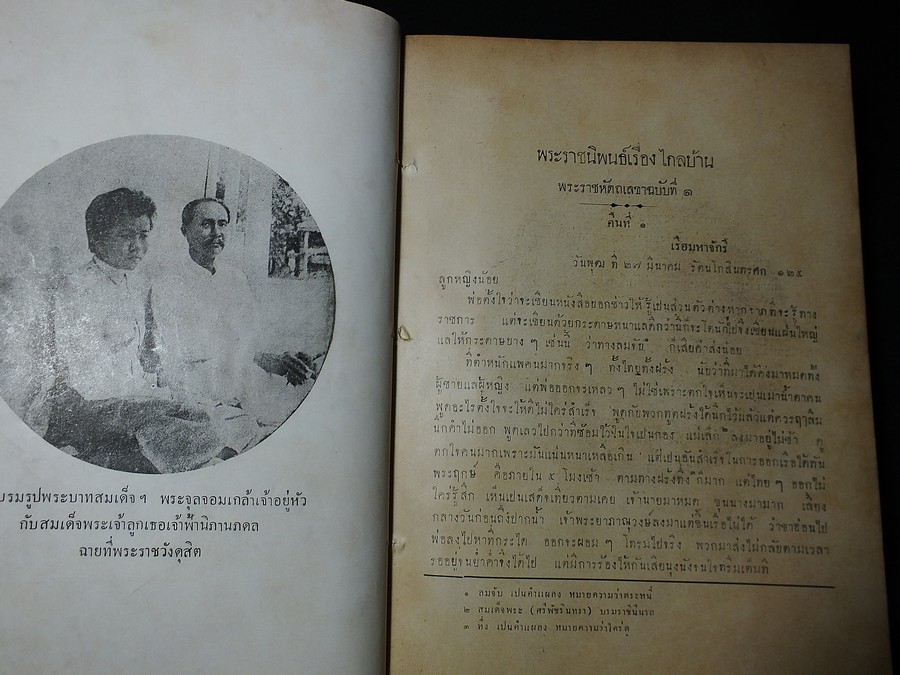 บรมรูปพระบาทสมเด็จฯ พระจุลจอมเกล้าเจ้าอยู่หัว
กับสมเด็จพระเจ้าลูกเธอเจ้าฟ้านิภานภดล
ฉายที่พระราชวังดุสิต
พระราชนิพนธ์เรื่อง ไกลบ้าน
พระราชหัตถเลขาฉบับที่ ๑
คืนที่ ๑
เรือมหาจักรี
วันพุฒ ที่ ๒๗ มีนาคม รัตนโกสินทรศก ๑๒๕
ลูกหญิงน้อย
พ่อตั้งใจว่าจะเขียนหนังสือบอกข่าวให้รู้เป็นส่วนตัวต่างหากจากที่จะรู้ทาง
ราชการ แต่จะเขียนด้วยกระดาษหนาแลดีกว่านี้ก็จะโตนัก
แลให้กระดาษยาง ๆ เช่นนี้ ว่าทางลมจับ ก็เสียคำส่งน้อย
ที่ตำหนักแพคนมากจริง ๆ ทั้งไทยทั้งฝรั่ง นับว่าที่มาได้คงมาหมดทั้ง
ผู้ชายแลผู้หญิง แต่พ่อออกจะเหลว ๆ ไม่ใช่เพราะตกใจเห็นจะเป็นเมาน้ำตาคน
พูดอะไรตั้งใจจะให้ดีไม่ใคร่สำเร็จ พูดกับพวกทูตฝรั่งได้นึกไว้แล้ว
นึกคำไม่ออก พูดเลวไปกว่าที่ซ้อมไว้ในใจเป็นกอง แม่เล็ก ลงมาอยู่ไม่ช้า ดู
ตกใจคนมากเพราะมันแน่นหนาเหลือเกิน แต่เป็นอันสำเร็จในการออกเรือได้ทัน
พระฤกษ์ คือภายใน ๕ โมงเช้า ตามทางฝรั่งทึ่ง ก็มาก แต่ไทย ๆ ออกไม่
ใคร่รู้สึก เห็นเป็นเสด็จเที่ยวตามเคย เจ้านายมาหมด ขุนนางมามาก เลี้ยง
กลางวันก่อนถึงปากน้ำ เจ้าพระยาภาณุวงษ์ลงมาแต่ขึ้นเรือไม่ได้ ว่าขาอ่อนไป
พ่อลงไปหาที่กระได ออกจะผอม ๆ โทรมไปจริง พวกมาส่งไม่กลับตามเวลา
รออยู่จนย่ำค่ำจึงได้ไป แต่มีการร้องไห้กัน
๑ ลมจับ เปนคำแผลง หมายความว่าตระหนี่
๒ สมเด็จพระ (ศรีพัชรินทรา) บรมราชินีนาถ
๓ ทึ่ง เปนคำแผลง หมายความว่าใคร่ดู